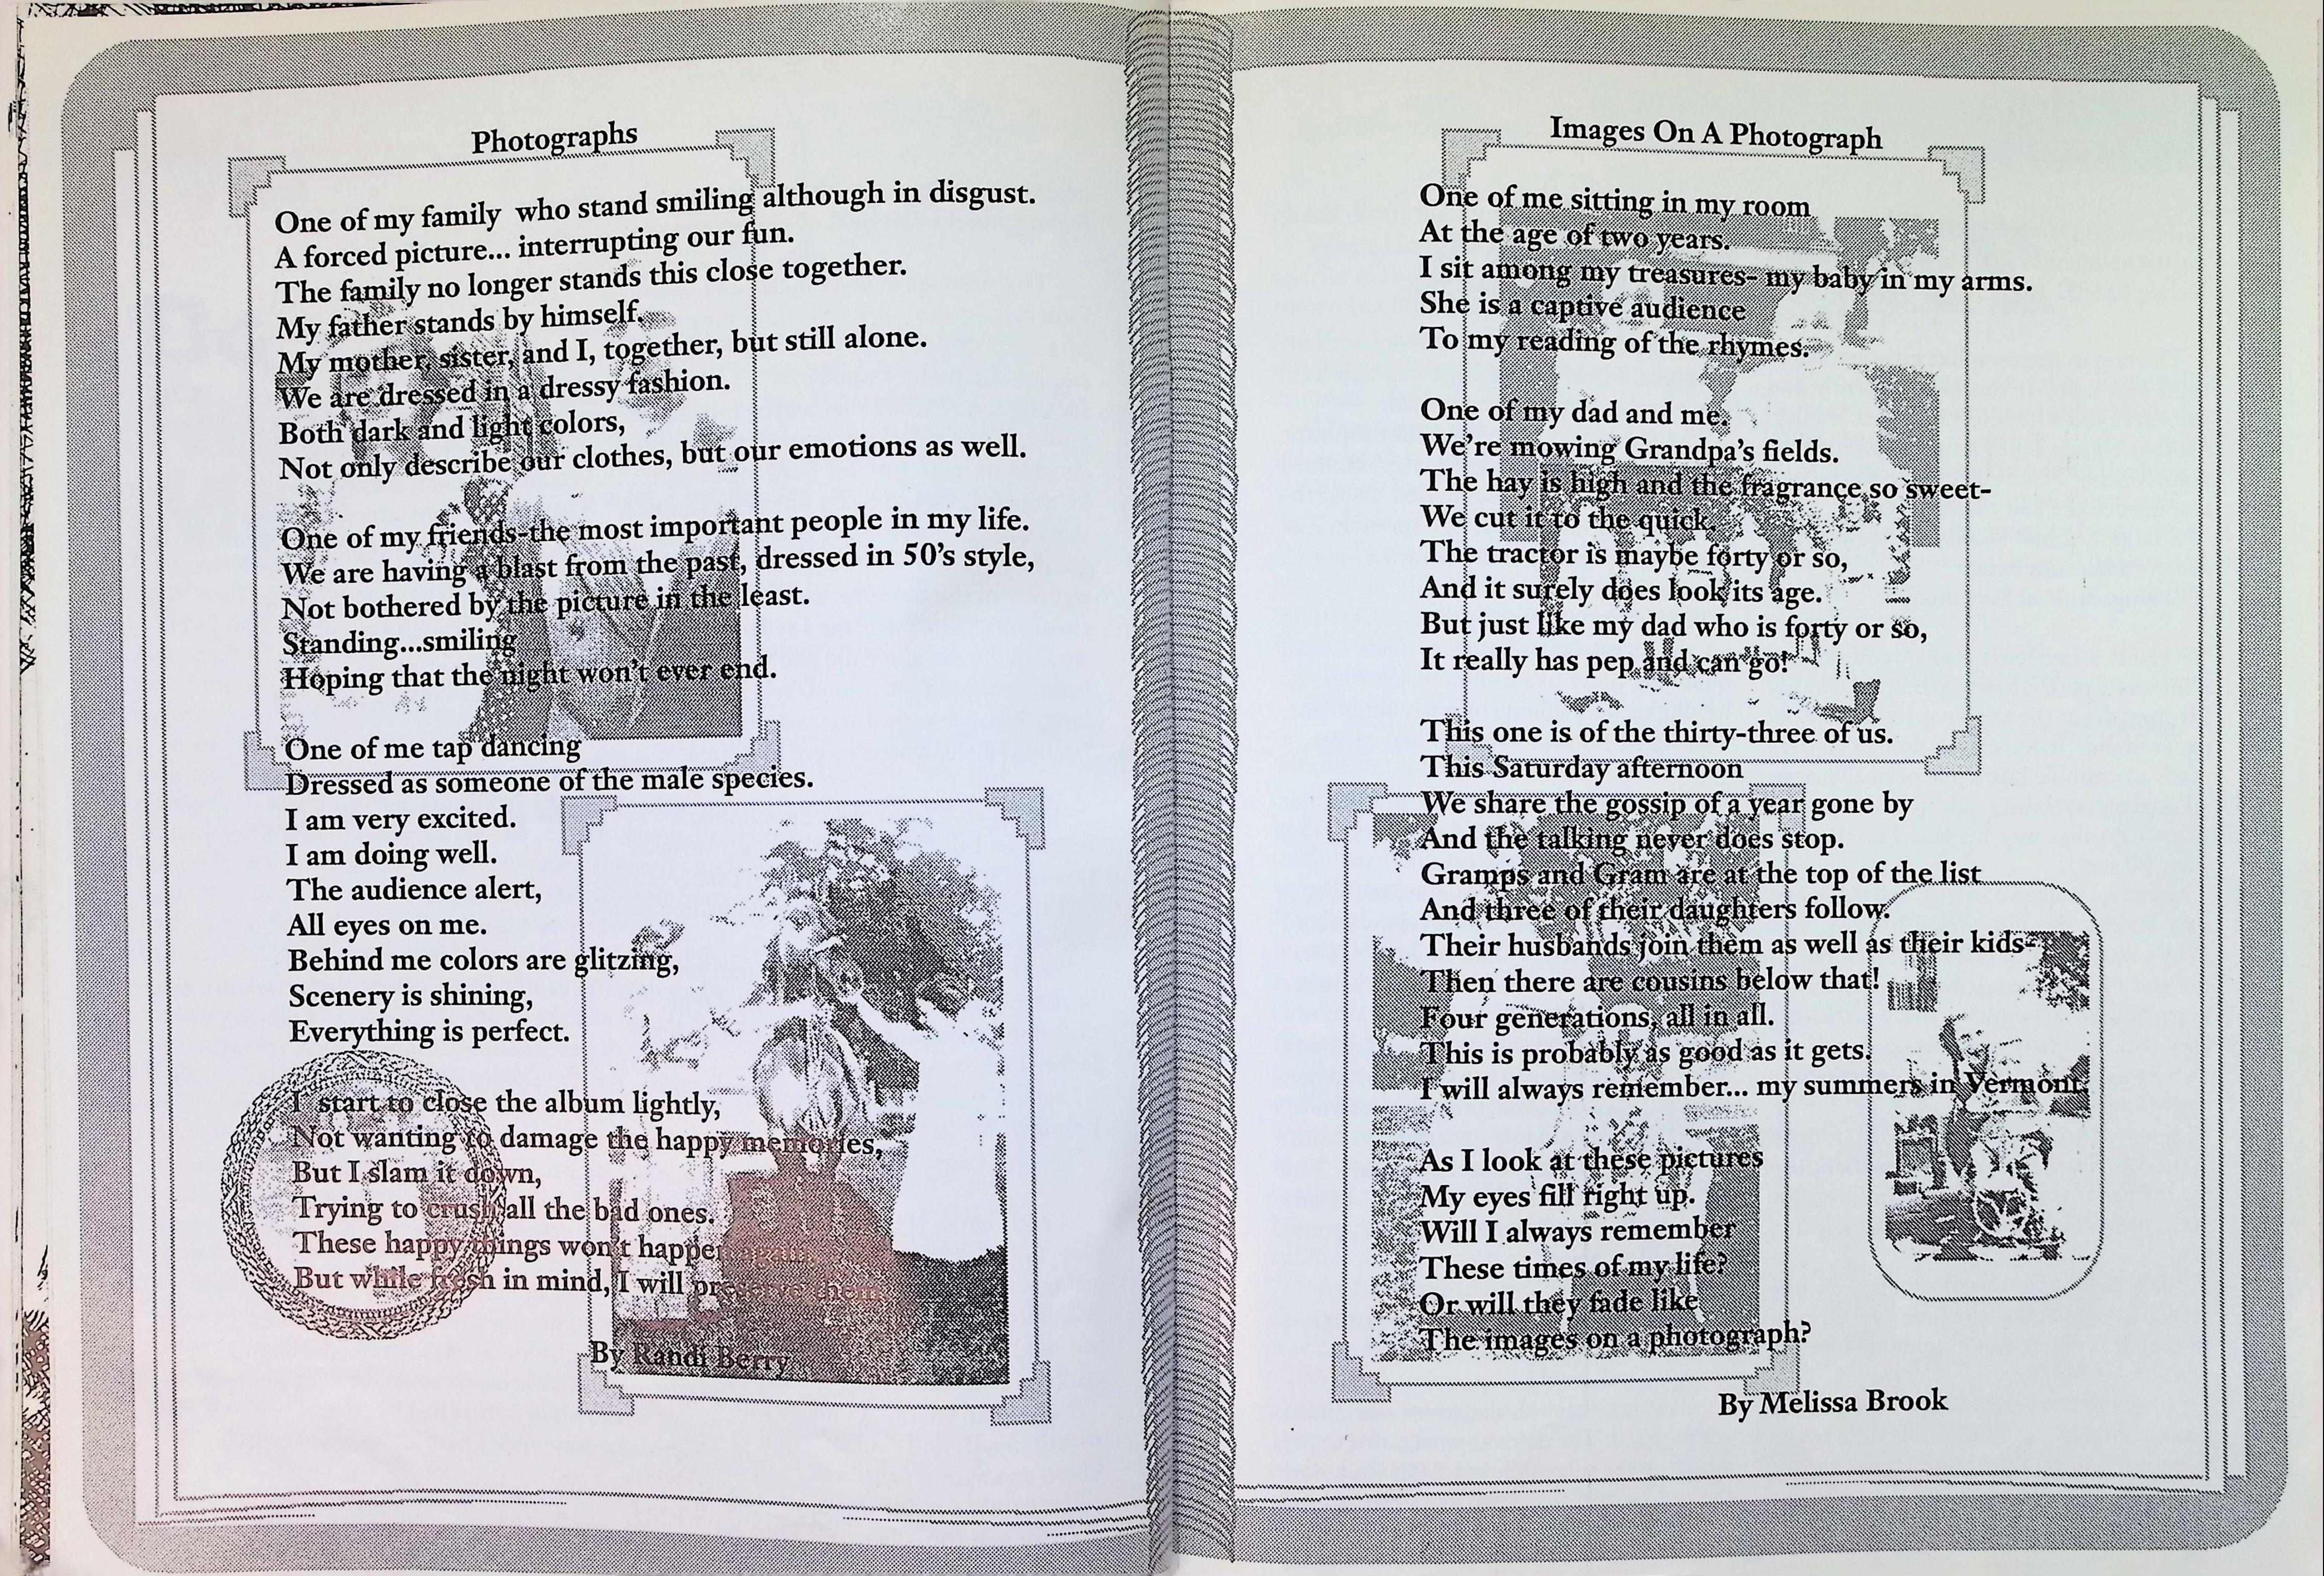 Photographs
One of my family who stand smiling although in disgust.
A forced picture... interrupting our fun.
The family no longer stands this close together.
My father stands by himself.
My mother, sister, and I, together, but still alone.
We are dressed in a dressy fashion.
Both dark and light colors,
Not only describe our clothes, but our emotions as well.
One of my friends-the most important people in my life.
We are having a blast from the past, dressed in 50's style,
Not bothered by the picture in the least.
Standing...smiling
Hoping that the night won't ever end.
One of me tap dancing
Dressed as someone of the male species.
I am very excited.
I am doing well.
The audience alert,
All eyes on me.
Behind me colors are glitzing,
Scenery is shining,
Everything is perfect.
I start to close the album lightly,
Not wanting to damage the happy memories,
But I slam it down,
Trying to crush all the bad ones.
These happy things won't happen again.
But while fresh in mind, I will preserve them.
By Randi Berry
Images On A Photograph
One of me sitting in my room
At the age of two years.
I sit among my treasures- my baby in my arms.
She is a captive audience
To my reading of the rhymes.
One of my dad and me.
We're mowing Grandpa's fields.
The hay is high and the fragrance so sweet-
We cut it to the quick.
The tractor is maybe forty or so,
And it surely does look its age.
But just like my dad who is forty or so,
It really has pep and can go!
This one is of the thirty-three of us.
This Saturday afternoon
We share the gossip of a year gone by
And the talking never does stop.
Gramps and Gram are at the top of the list
And three of their daughters follow.
Their husbands join them as well as their kids-
Then there are cousins below that!
Four generations, all in all.
This is probably as good as it gets.
I will always remember... my summers in Vermont.
As I look at these pictures
My eyes fill right up.
Will I always remember
These times of my life?
Or will they fade like
The images on a photograph?
By Melissa Brook